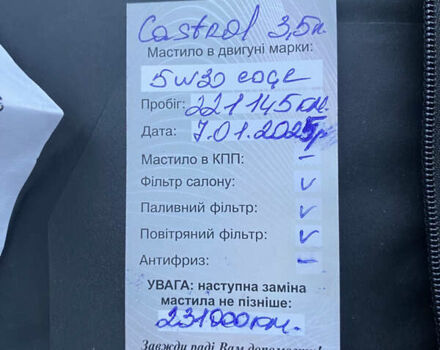 Castrol 3,5л.
Мастило в двигуні марки:
5w30 EDGE
Пробіг: 221145км.
Дата: 7.01.2025р
Мастило в КПП: –
Фільтр салону: ✓
Паливний фільтр: ✓
Повітряний фільтр: ✓
Антифриз: –
УВАГА: наступна заміна
мастила не пізніше:
231000км.
Завжди раді Вам допомогти!